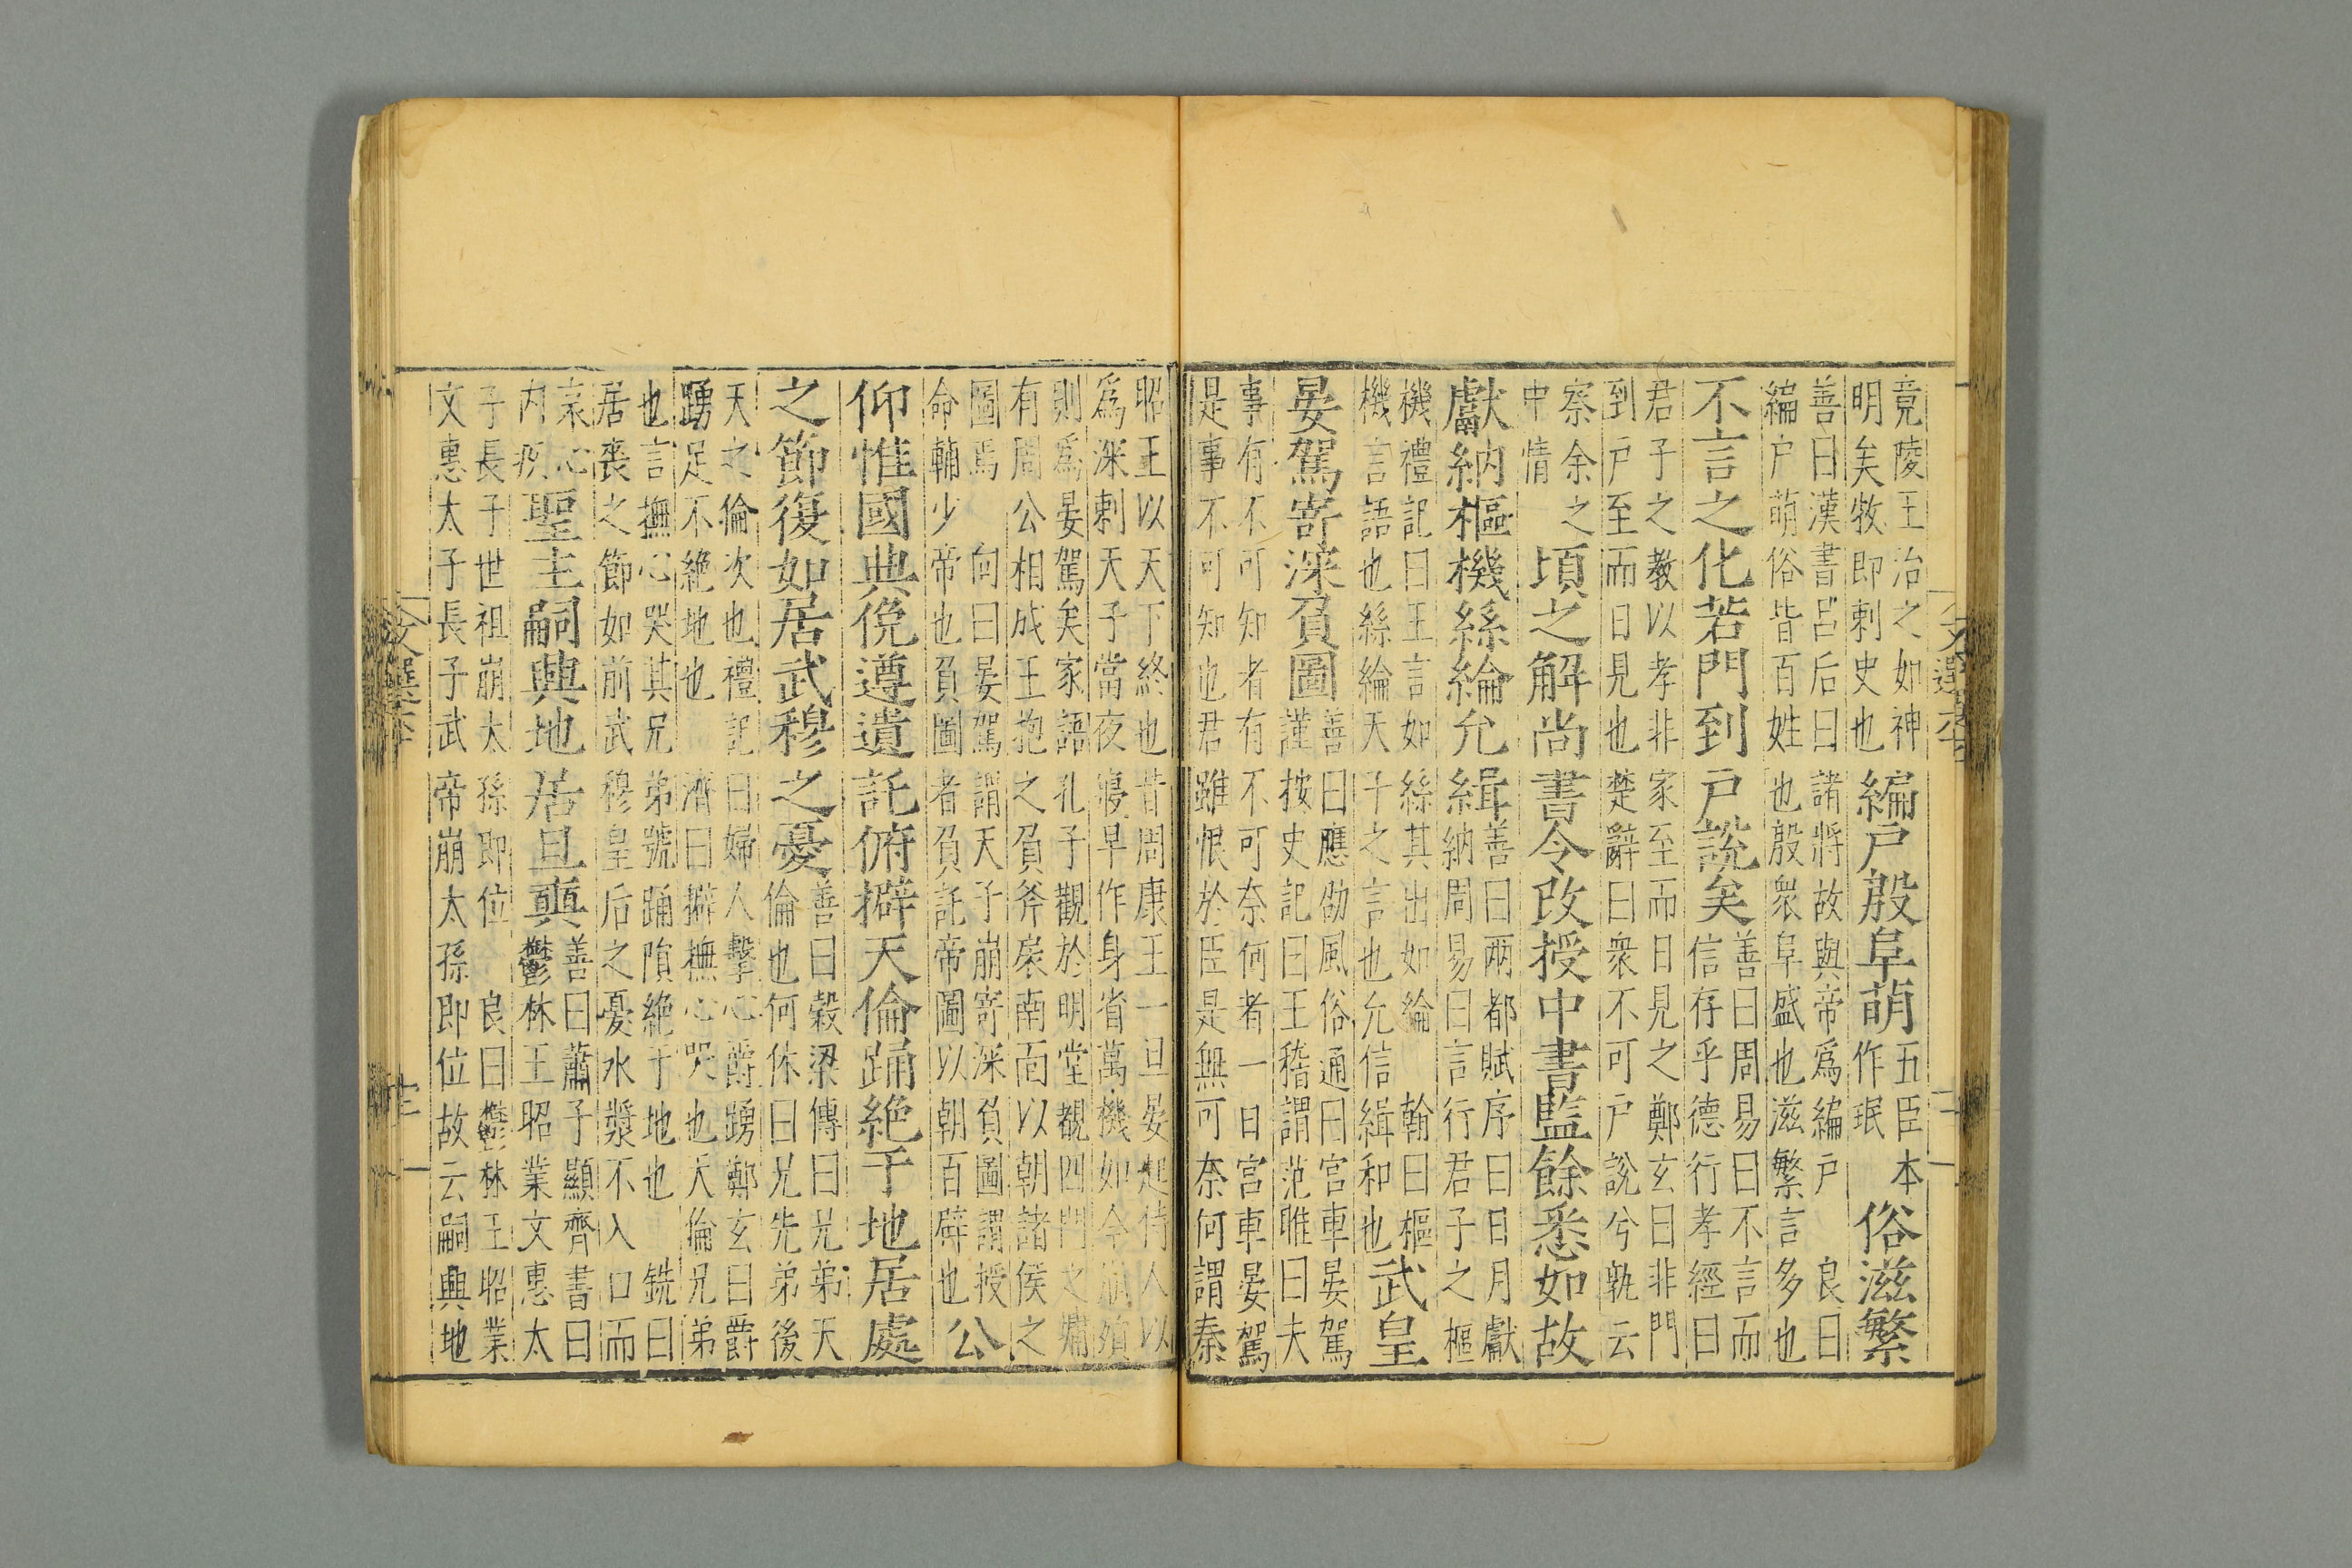 竟陵王治之如神
明矣牧即刺史也
編戶殷阜萌
五臣本
作珉
俗滋繁
善曰漢書呂后曰諸將故與帝爲編戶　良曰
編戶萌俗皆百姓也殷衆阜盛也滋繁言多也
不言之化若門到戶說矣
善曰周易曰不言而
信存乎德行孝經曰
君子之教以孝非家至而日見之鄭玄曰非門
到戶至而日見也楚辭曰衆不可戶說兮孰云
察余之
中情
頃之解尚書令改授中書監餘悉如故
獻納樞機絲綸允緝
善曰兩都賦序曰日月獻
納周易曰言行君子之樞
機禮記曰王言如絲其出如綸　翰曰樞
機言語也絲綸天子之言也允信緝和也
武皇
晏駕寄深負圖
善曰應劭風俗通曰宮車晏駕
謹按史記曰王稽謂范睢曰夫
事有不可知者有不可奈何者一日宮車晏駕
是事不可知也君雖恨於臣是無可奈何謂秦
昭王以天下終也昔周康王一旦晏起侍人以
爲深刺天子當夜寢早作身省萬機如今崩殞
則爲晏駕矣家語孔子觀於明堂覩四門之墉
有周公相成王抱之負斧扆南面以朝諸侯之
圖焉　向曰晏駕謂天子崩寄深負圖謂授
命輔少帝也負圖者負託帝圖以朝百辟也
公
仰惟國典俛遵遺託俯擗天倫踊絶于地居處
之節復如居武穆之憂
善曰穀梁傳曰兄弟天
倫也何休曰兄先弟後
天之倫次也禮記曰婦人擊心爵踴鄭玄曰爵
踴足不絶地也　濟曰擗撫心哭也天倫兄弟
也言撫心哭其兄弟號踊隕絶于地也　銑曰
居喪之節如前武穆皇后之憂水漿不入口而
哀心
内疚
聖主嗣興地居旦奭
善曰蕭子顯齊書曰
鬱林王昭業文惠太
子長子世祖崩太孫即位　良曰鬱林王昭業
文惠太子長子武帝崩太孫即位故云嗣興地